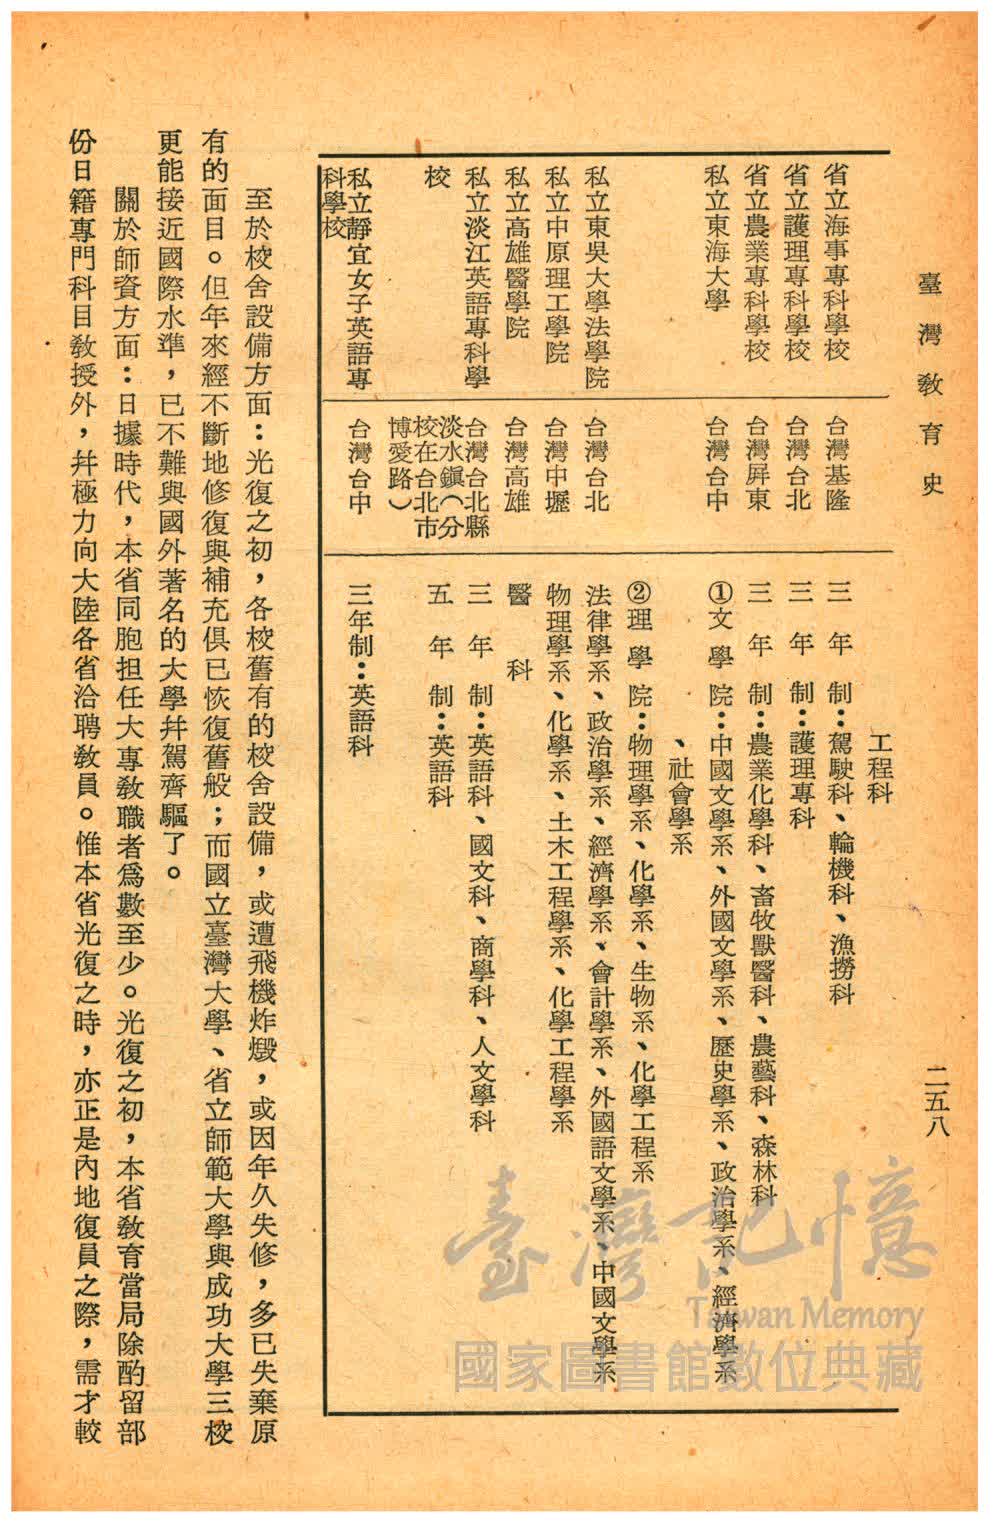 臺灣教育史
二五八
工程科
省立海事專科學校 台灣基隆 三年制：駕駛科、輪機科、漁撈科
省立護理專科學校 台灣台北 三年制：護理專科
省立農業專科學校 台灣屏東 三年制：農業化學科、畜牧獸醫科、農藝科、森林科
私立東海大學 台灣台中 ①文學院：中國文學系、外國文學系、歷史學系、政治學系、經濟學系
、社會學系
②理學院：物理學系、化學系、生物系、化學工程系
私立東吳大學法學院 台灣台北 法律學系、政治學系、經濟學系、會計學系、外國語文學系、中國文學系
私立中原理工學院 台灣中壢 物理學系、化學系、土木工程學系、化學工程學系
私立高雄醫學院 台灣高雄 醫科
私立淡江英語專科學 台灣台北縣 三年制：英語科、國文科、商學科、人文學科
校 淡水鎮（分
校在台北市 五年制：英語科
博愛路）
私立靜宜女子英語專 台灣台中 三年制：英語科
科學校
至於校舍設備方面：光復之初，各校舊有的校舍設備，或遭飛機炸燬，或因年久失修，多已失棄原
有的面目。但年來經不斷地修復與補充俱已恢復舊般；而國立臺灣大學、省立師範大學與成功大學三校
更能接近國際水準，已不難與國外著名的大學幷駕齊驅了。
關於師資方面：日據時代，本省同胞担任大專教職者爲數至少。光復之初，本省教育當局除酌留部
份日籍專門科目教授外，幷極力向大陸各省洽聘教員。惟本省光復之時，亦正是內地復員之際，需才較
臺灣記憶
Taiwan Memory
國家圖書館數位典藏